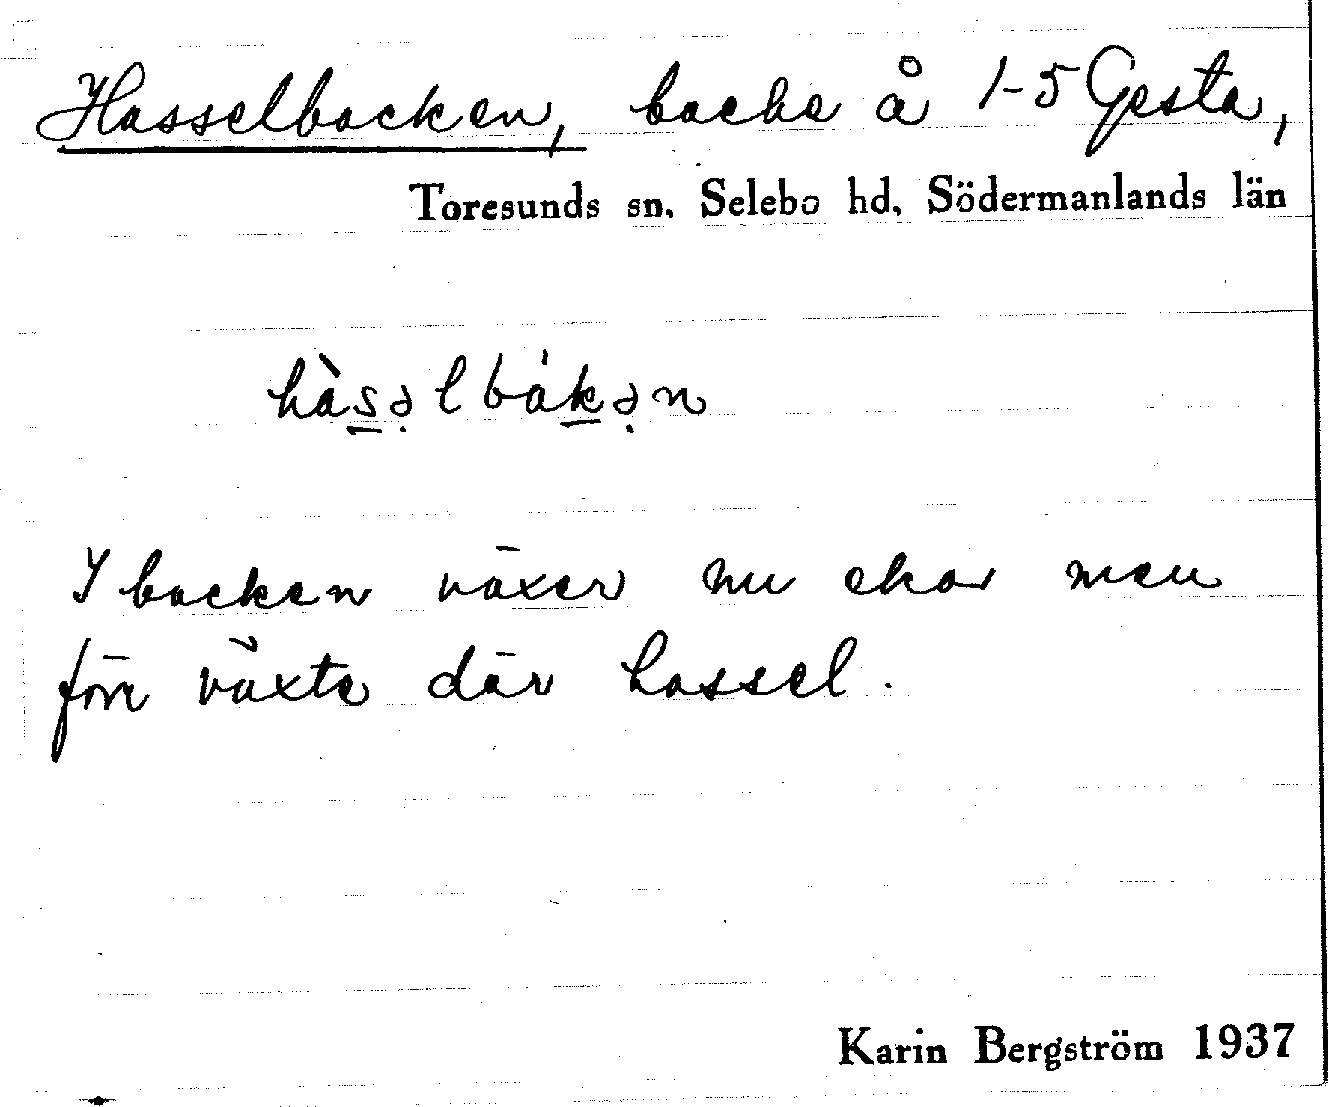 Hasselbacken, backe å 1-5 Gesta,
Toresunds sn. Selebo hd, Södermanlands län
hàsə̣lbákə̣n
I backen växer nu ekar men
förr växte där hassel.
Karin Bergström 1937